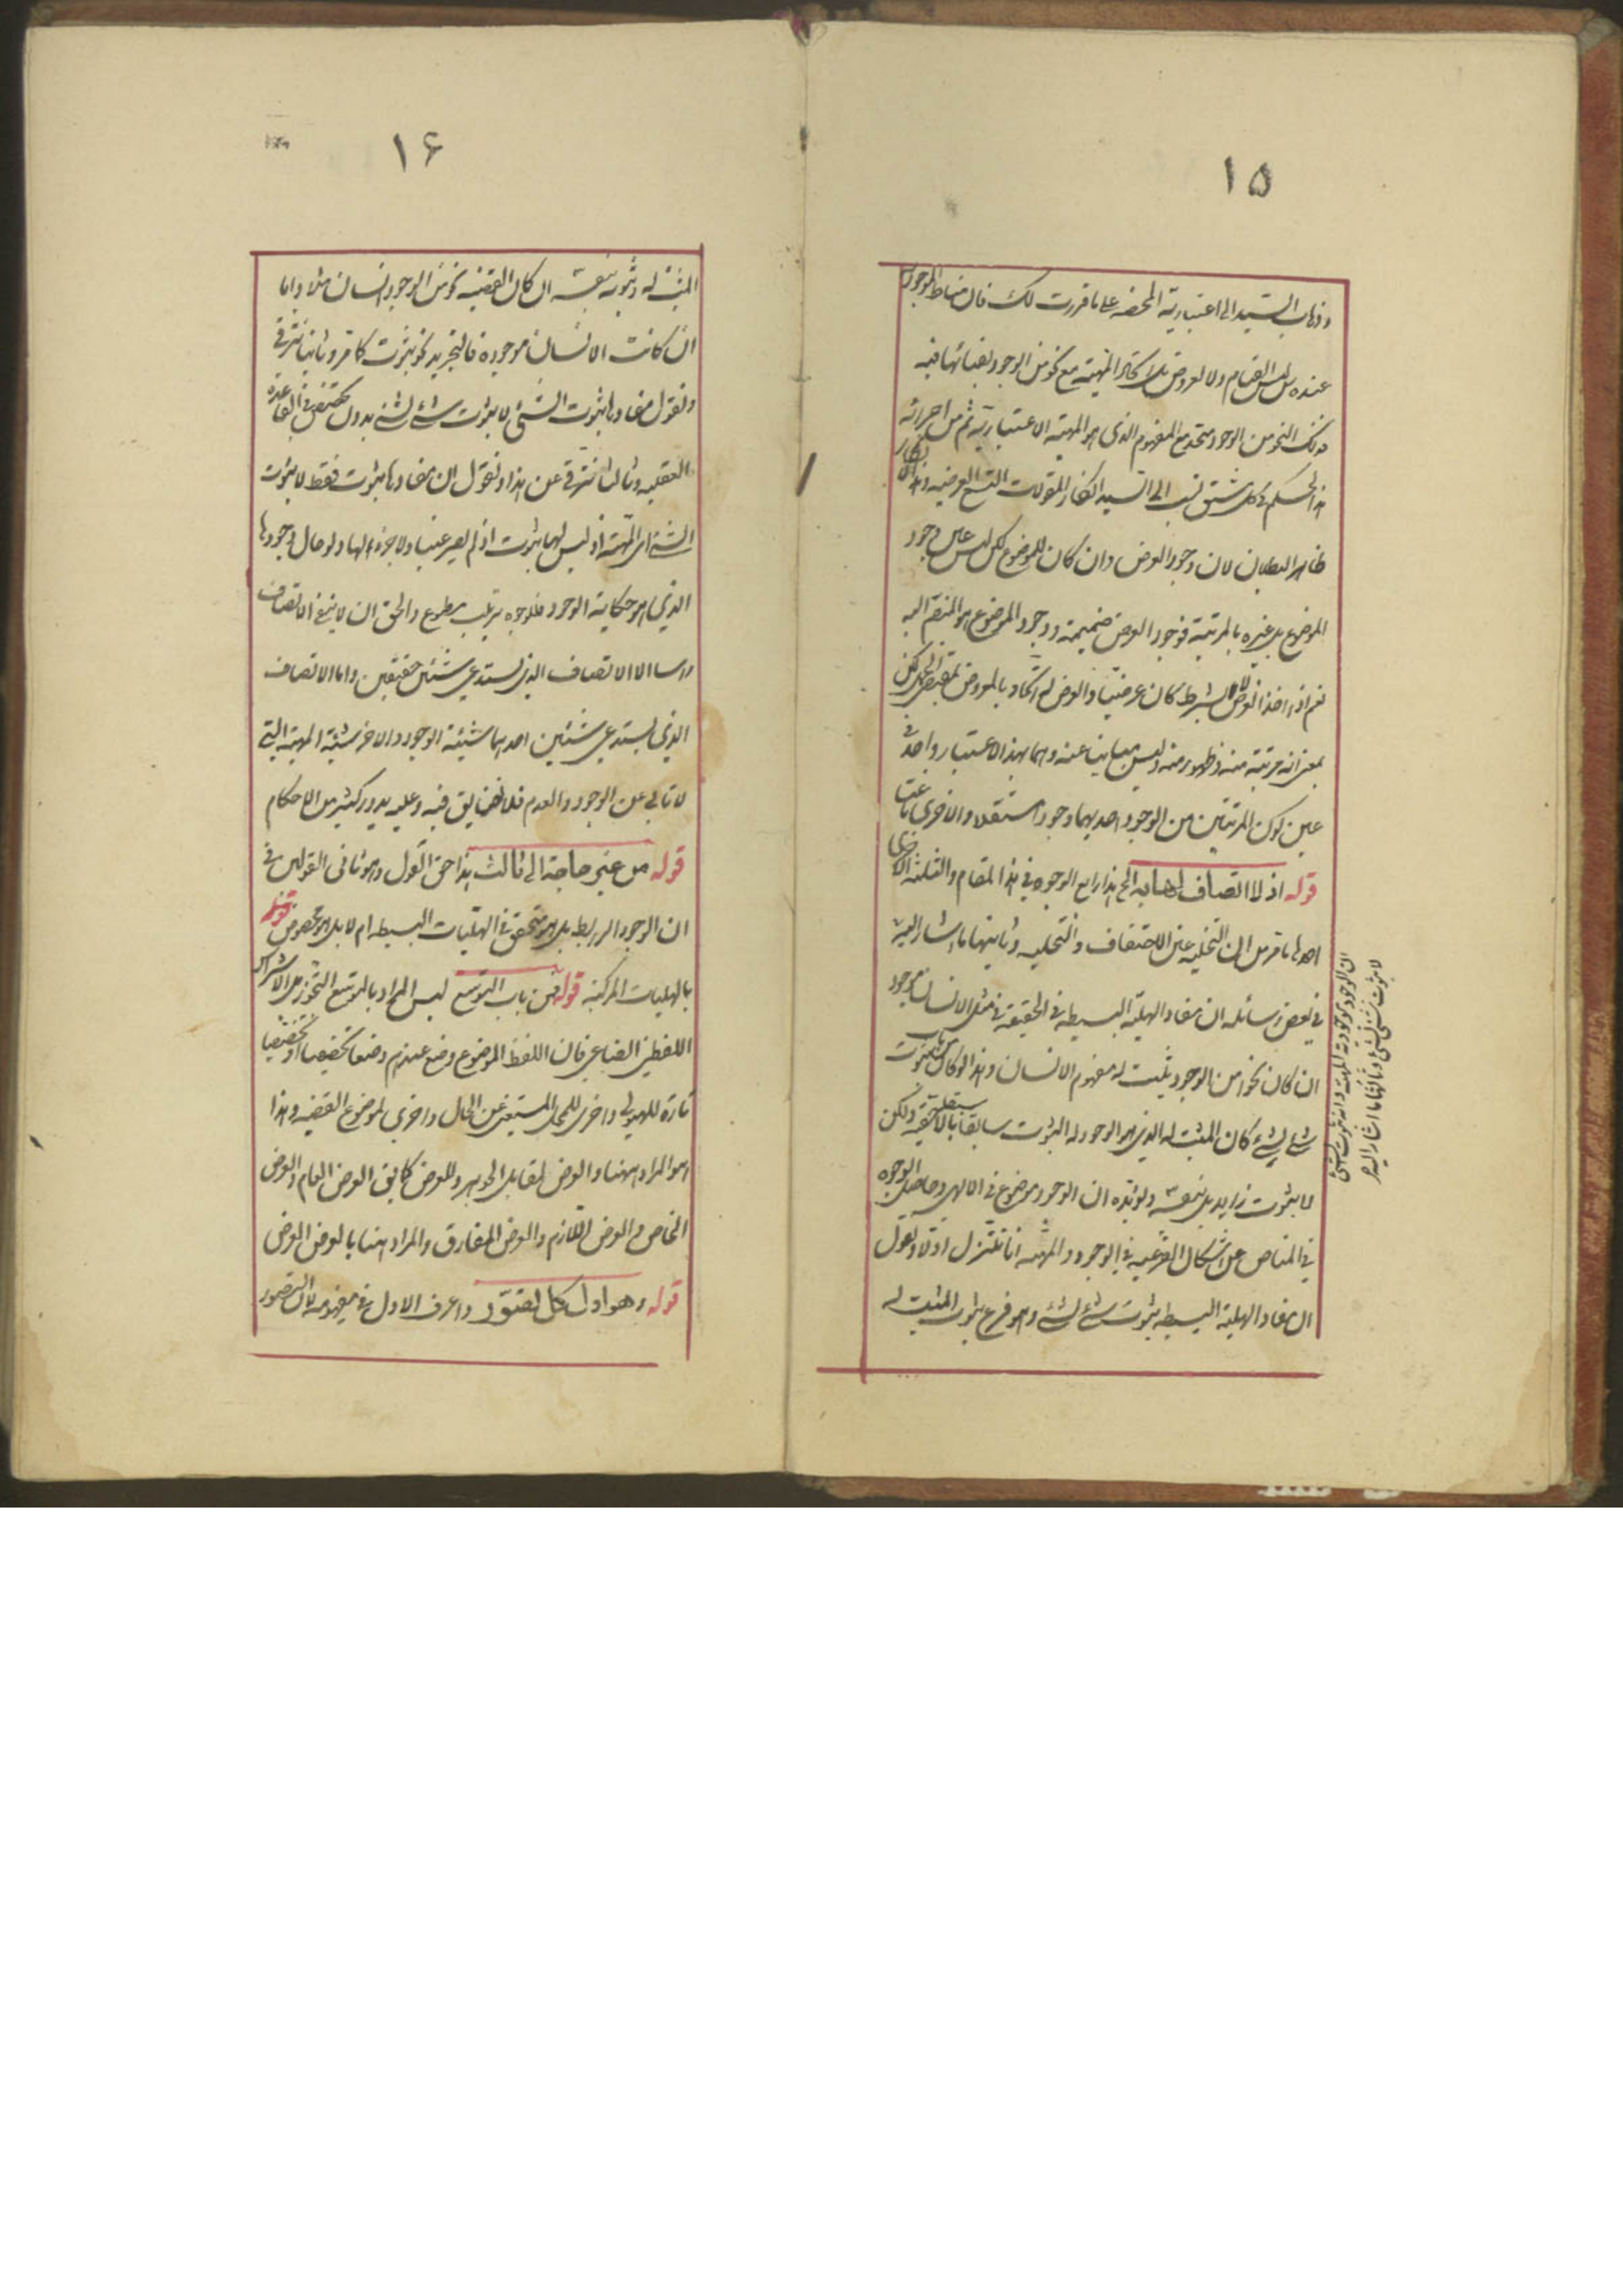 ١٥
وذهاب السيد الى اعتبارية المحضة على ما قررت لك فان مناط الموجودية
عنده ليس القيام ولا العروض بل اتحاد المهية مع نحو من الوجود لفنائها فيه
وذلك النحو من الوجود متحد مع المفهوم الذى هو المهية الاعتبارية ثم من اجرائه
هذا الحكم فى كل مشتق نسب الى السيد انكار المقولات التسع العرضية وهذا الانكار
ظاهر البطلان لان وجود العرض وان كان للموضوع لكن ليس عين وجود
الموضوع بل غيره بالمرتبة فوجود العرض ضميمة ووجود الموضوع هو المنضم اليه
نعم اذا اخذ العرض لا بشرط كان عرضيا والعرض له اتحاد بالمعروض بمقتضى الحمل لكن
بمعنى انه مرتبة منه وظهور منه وليس مباينا عنه وهما بهذا الاعتبار واحد فى
عين كون المرتبتين من الوجود احديهما وجودا مستقلا والاخرى ناعتا
قوله اذ لا اتصاف لها به الخ هذا رابع الوجوه فى هذا المقام والثلثة الاخرى
احدها ما مر من ان التخلية عين الاحتفاف والتحلية وثانيها ما اشار اليه
فى بعض رسائله ان مفاد الهلية البسيطة فى الحقيقة فى مثل الانسان موجود
ان كان نحوا من الوجود يثبت له مفهوم الانسان وهذا لو كان من باب ثبوت
شئ لشئ كان المثبت له الذى هو الوجود له الثبوت سابقا بالحقيقة ولكن
لا بثبوت زايد بل بنفسه ويؤيده ان الوجود موضوع فى الالهى وحاصل الوجوه
فى المناص عن اشكال الفرعية فى الوجود والمهية انا نتنزل اولا ونقول
ان مفاد الهلية البسيطة ثبوت شئ لشئ وهو فرع ثبوت المثبت له
ان الوجود موجودية المهية وانه ثبوت الشئ
لا ثبوت شئ لشئ وثالثها ما اشار اليه
١٦
المثبت له وثبوته بنفسه ان كان القضية نحو من الوجود انسان مثلا واما
ان كانت الانسان موجودة فالتجريد نحو ثبوت كما مر وثانيا نترقى
ونقول مفادها ثبوت الشئ لا ثبوت شئ لشئ بدون تخصيص فى القاعدة
العقلية وثالثا نترقى عن هذا ونقول ان مفادها ثبوت فقط لا ثبوت
الشئ اى المهية اذ ليس لها ثبوت اذ لم يصر عينا ولا جزء لها ولو حال وجودها
الذى هو حكاية الوجود فللوجوه ترتيب مطبوع والحق ان لا ينفى الاتصاف
راسا الا الاتصاف الذى يستدعى شيئين حقيقين واما الاتصاف
الذى يستدعى شيئين احدهما شيئية الوجود والاخر شيئية المهية التى
لا تابى عن الوجود والعدم فلا مضايق فيه وعليه يدور كثير من الاحكام
قوله من غير حاجة الى ثالث هذا حق القول وهو ثانى القولين فى
ان الوجود الرابط بل هو متحقق فى الهليات البسيطة ام لا بل هو مخصوص
بالهليات المركبة قوله فمن باب التوسع ليس المراد بالتوسع التجوز بل الاشتراك
اللفظى الصناعى فان اللفظ الموضوع وضع عندهم وضعا تخصيصيا او تخصصيا
تارة للهيولى واخرى للمحل المستغنى عن الحال واخرى لموضوع القضية وهذا
هو المراد ههنا والعرض لمقابل الجوهر وللعرض كما يق العرض العام والعرض
الخاص والعرض اللازم والعرض المفارق والمراد ههنا بالعرض العرضى
قوله وهو اول كل تصور واعرف الاول فى مفهومه لان التصور